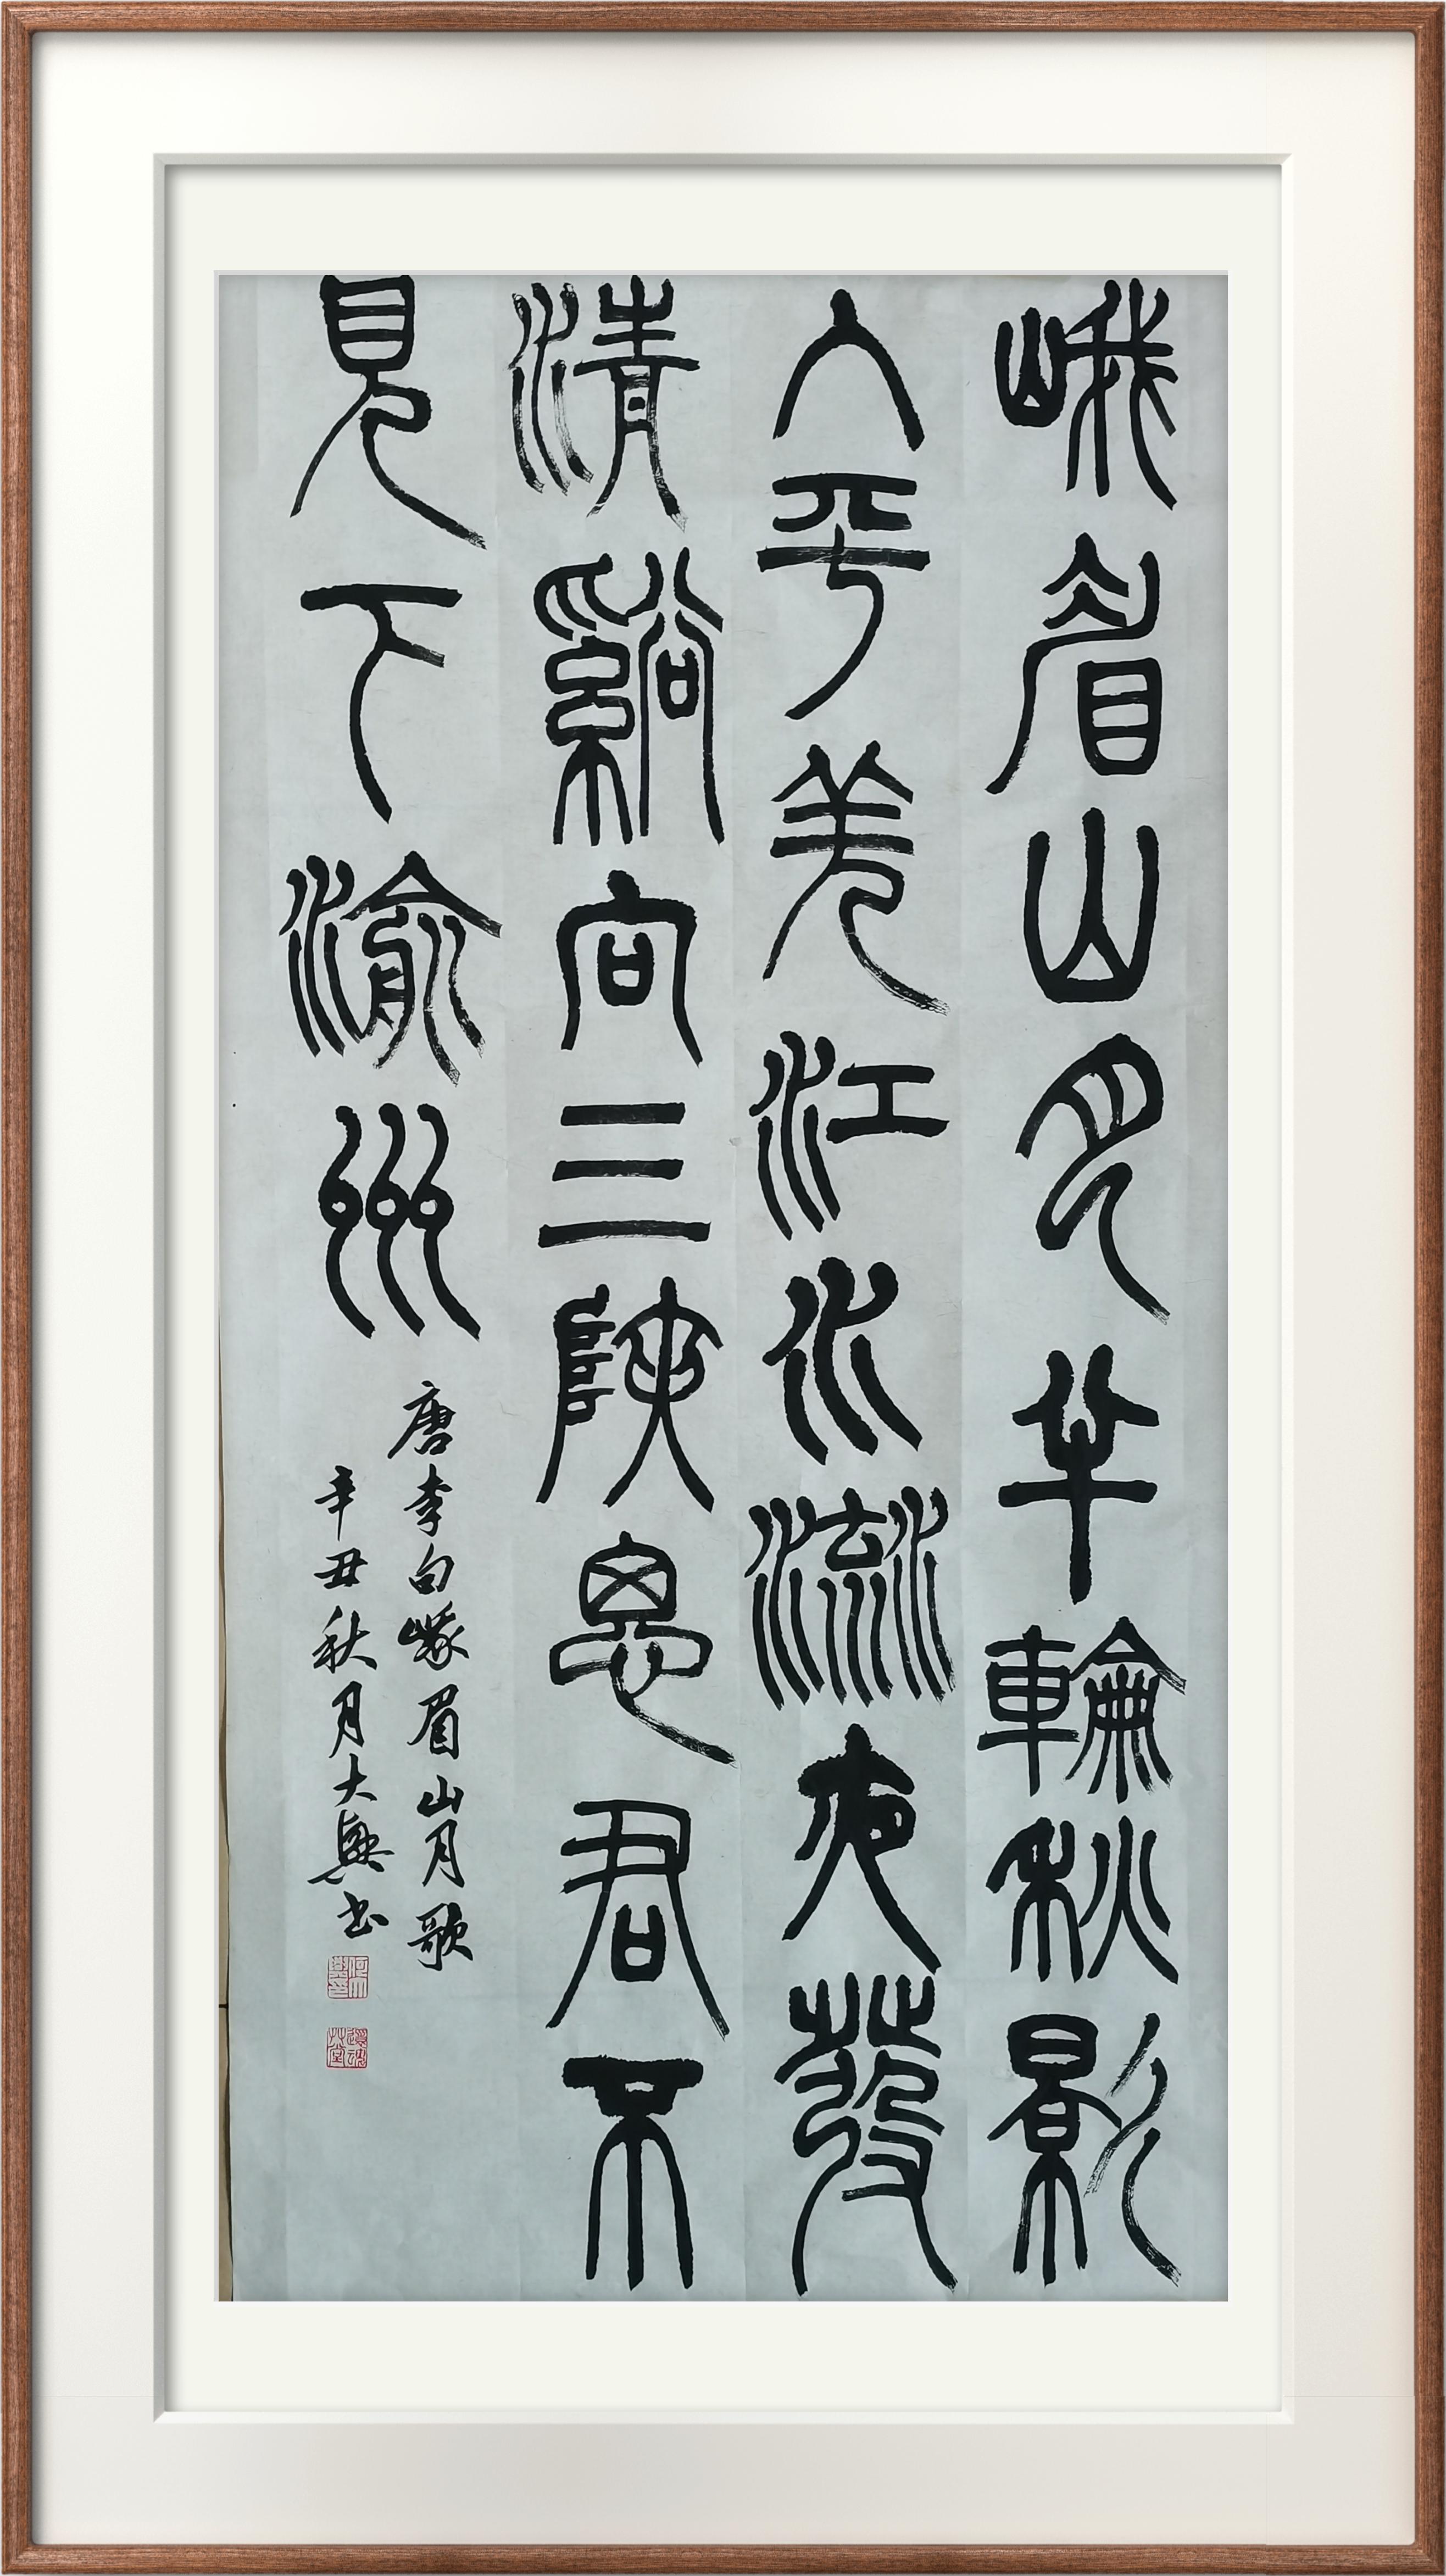 峨眉山月半輪秋影
入平羌江水流夜發
清谿向三陜思君不
見下渝州
唐李白峨眉山月歌
辛丑秋月大興书